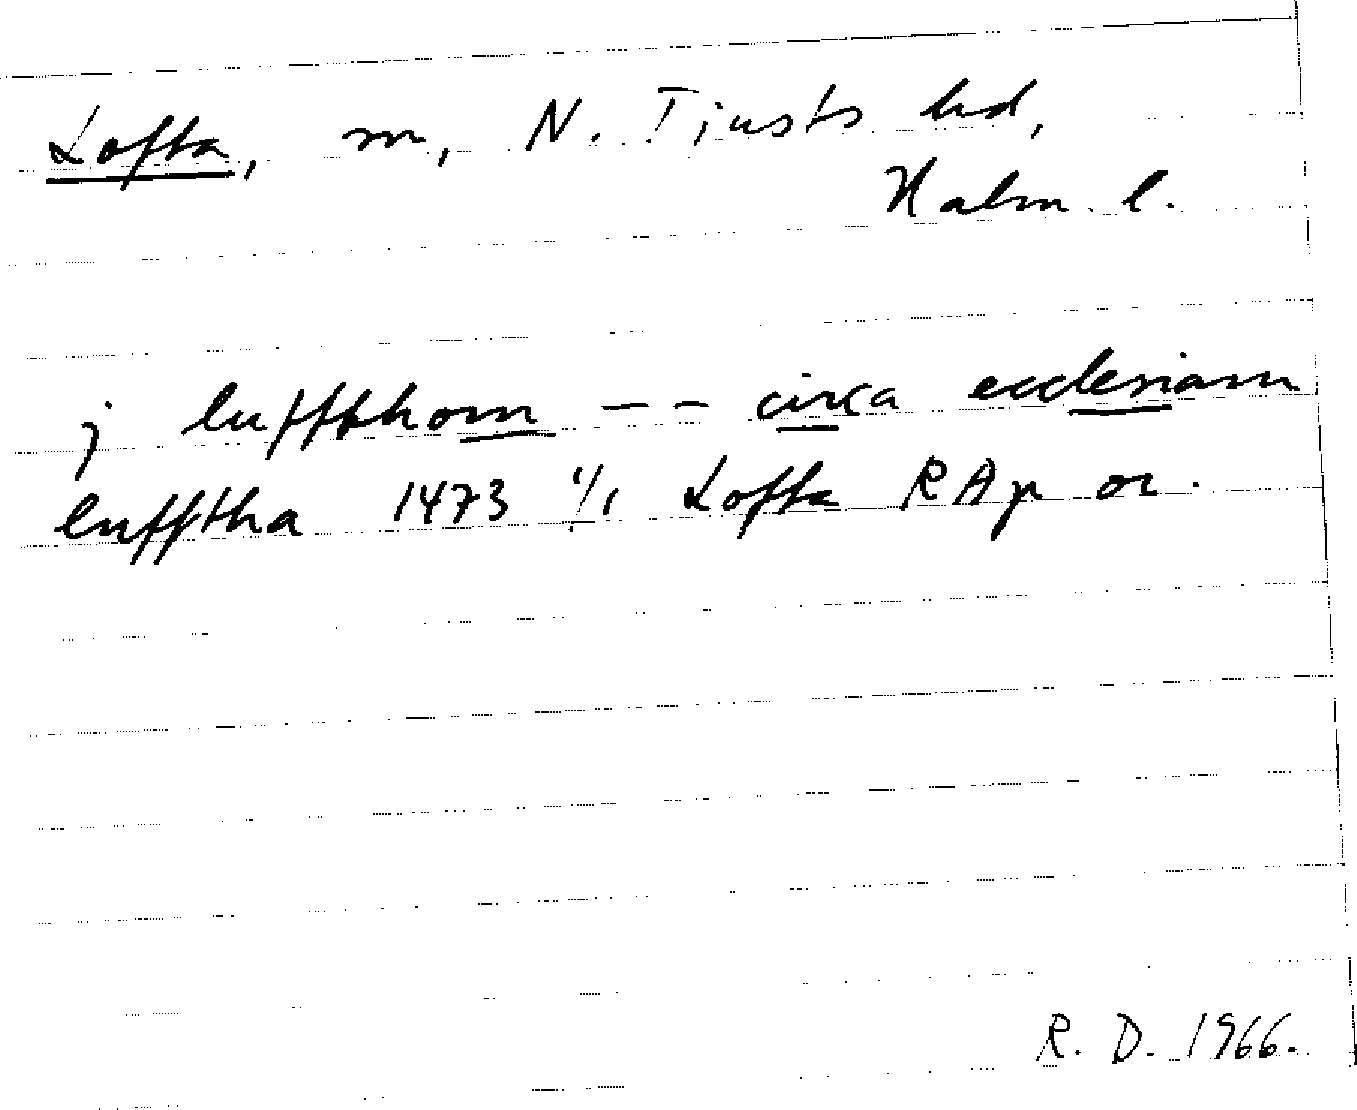 Lofta, sn, N. Tjusts hd,
Kalm. l.
j luffthom -- circa ecclesiam
lufftha 1473 1/1 Lofta RAp or.
R. D. 1966.